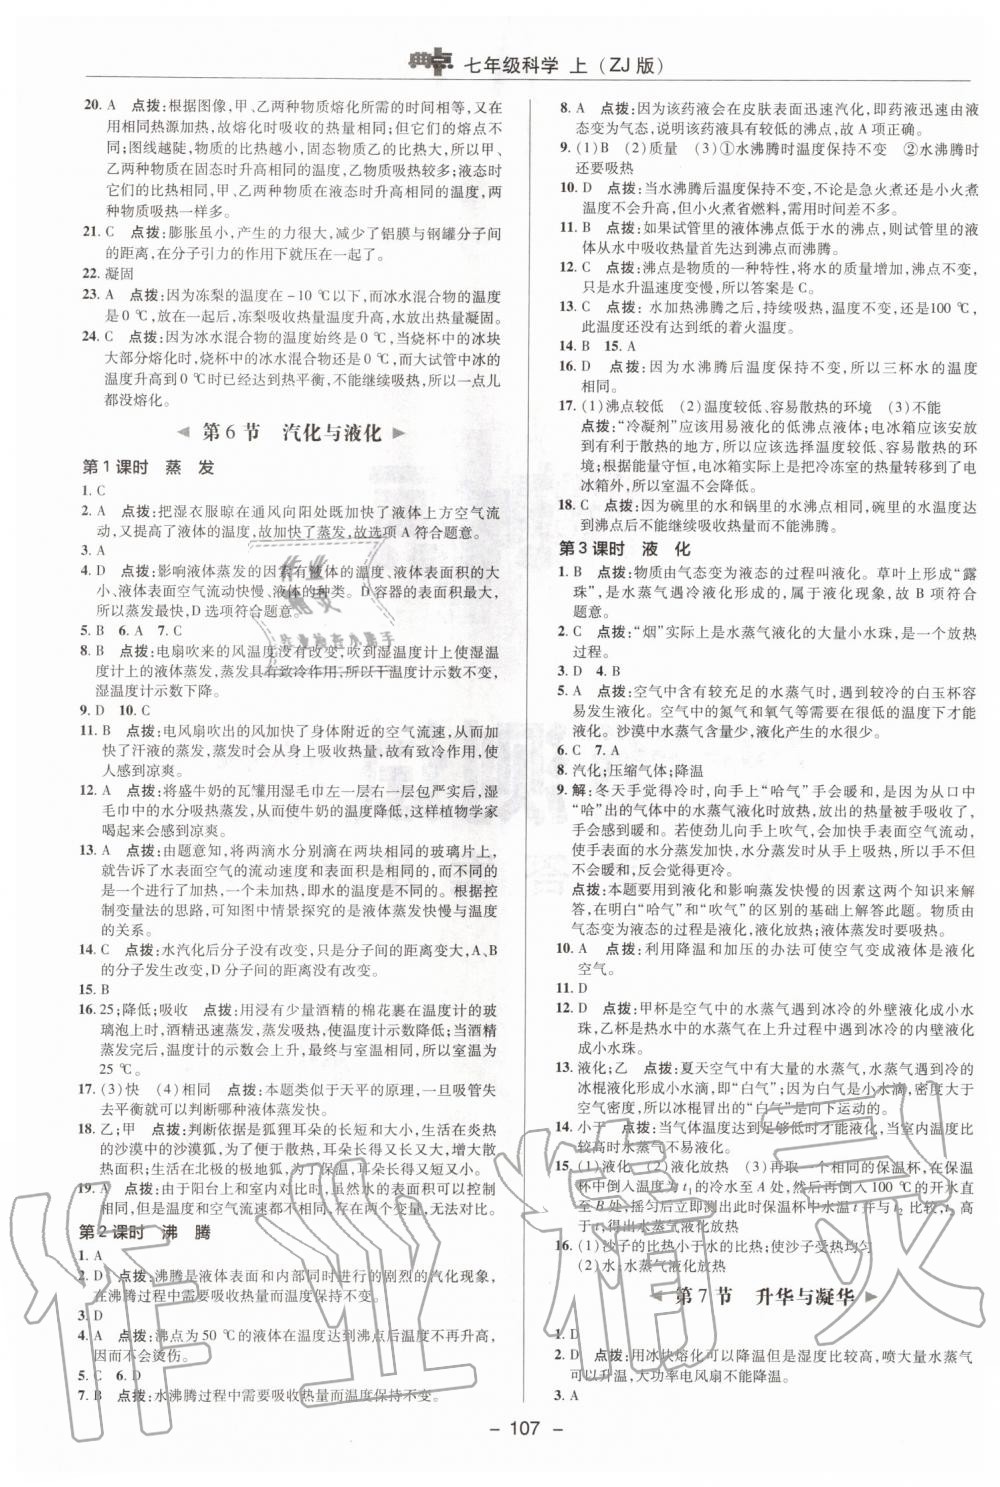 典点 七年级科学 上(ZJ版)
20. A 点拨:根据图像,甲、乙两种物质熔化所需的时间相等,又在
用相同热源加热,故熔化时吸收的热量相同;但它们的熔点不
同;图线越陡,物质的比热越小,固态物质乙的比热大,所以甲、
乙两种物质在固态时升高相同的温度,乙物质吸热较多;液态时
它们的比热相同,甲、乙两种物质在液态时升高相同的温度,两
种物质吸热一样多。
21. C 点拨:膨胀虽小,产生的力很大,减少了铝膜与钢罐分子间
的距离,在分子引力的作用下就压在一起了。
22. 凝固
23. A 点拨:因为冻梨的温度在-10 ℃以下,而冰水混合物的温度
是0 ℃,放在一起后,冻梨吸收热量温度升高,水放出热量凝固。
24. C 点拨:因为冰水混合物的温度始终是0 ℃,当烧杯中的冰块
大部分熔化时,烧杯中的冰水混合物还是0 ℃,而大试管中冰的
温度升高到0 ℃时已经达到热平衡,不能继续吸热,所以一点儿
都没熔化。
第6节 汽化与液化
第1课时 蒸 发
1. C
2. A 点拨:把湿衣服晾在通风向阳处既加快了液体上方空气流
动,又提高了液体的温度,故加快了蒸发,故选项A符合题意。
3. A
4. D 点拨:影响液体蒸发的因素有液体的温度、液体表面积的大
小、液体表面空气流动快慢、液体的种类。D容器的表面积最大,
所以蒸发最快,D选项符合题意。
5. B 6. A 7. C
8. B 点拨:电扇吹来的风温度没有改变,吹到湿温度计上使湿温
度计上的液体蒸发。蒸发具有致冷作用,所以干温度计示数不变,
湿温度计示数下降。
9. D 10. C
11. B 点拨:电风扇吹出的风加快了身体附近的空气流速,从而加
快了汗液的蒸发,蒸发时会从身上吸收热量,故有致冷作用,使
人感到凉爽。
12. A 点拨:将盛牛奶的瓦罐用湿毛巾左一层右一层包严实后,湿
毛巾中的水分吸热蒸发,从而使牛奶的温度降低,这样植物学家
喝起来会感到凉爽。
13. A 点拨:由题意知,将两滴水分别滴在两块相同的玻璃片上,
就告诉了水表面空气的流动速度和表面积是相同的,而不同的
是一个加热,一个未加热,即水的温度是不同的。根据控
制变量法的思路,可知图中情景探究的是液体蒸发快慢与温度
的关系。
14. C 点拨:水汽化后分子没有改变,只是分子间的距离变大,A、B
的分子发生改变,D分子间的距离没有改变。
15. B
16. 25;降低;吸收 点拨:用浸有少量酒精的棉花裹在温度计的玻
璃泡上时,酒精迅速蒸发,蒸发吸热,使温度计示数降低;当酒精
蒸发完后,温度计的示数会上升,最终与室温相同。所以室温为
25 ℃。
17. (3)快 (4)相同 点拨:本题类似于天平的原理,一旦吸管失
去平衡就可以判断哪种液体蒸发快。
18. 乙;甲 点拨:判断依据是狐狸耳朵的长短和大小,生活在炎热
的沙漠中的沙漠狐,为了便于散热,耳朵长得又长又大,增大散
热面积;生活在北极的极地狐,为了保温,耳朵长得又短又小。
19. A 点拨:由于阳台上和室内对比时,虽然水的表面积可以控制
相同,但是温度和空气流速都不相同,存在两个变量,无法对比。
第2课时 沸 腾
1. A
2. D 点拨:沸腾是液体表面和内部同时进行的剧烈的汽化现象,
在沸腾过程中需要吸收热量而温度保持不变。
3. D
4. A 点拨:沸点为50 ℃的液体在温度达到沸点后温度不再升高,
因而不会烫伤。
5. C 6. D
7. B 点拨:水沸腾过程中需要吸收热量而温度保持不变。
8. A 点拨:因为该药液会在皮肤表面迅速汽化,即药液迅速由液
态变为气态,说明该药液具有较低的沸点,故A项正确。
9. (1)B (2)质量 (3)①水沸腾时温度保持不变 ②水沸腾时
还要吸热
10. D 点拨:当水沸腾后温度保持不变,不论是急火煮还是小火煮
温度不会升高,但小火煮省燃料,需用时间差不多。
11. B 点拨:如果试管里的液体沸点低于水的沸点,则试管里的液
体从水中吸收热量首先达到沸点而沸腾。
12. C 点拨:沸点是物质的一种特性,将水的质量增加,沸点不变,
只是水升温速度变慢,所以答案是C。
13. C 点拨: 水加热沸腾之后,持续吸热,温度不变,还是100 ℃,
此温度还没有达到纸的着火温度。
14. B 15. A
16. D 点拨:因为水沸腾后温度保持不变,所以三杯水的温度
相同。
17. (1)沸点较低 (2)温度较低、容易散热的环境 (3)不能
点拨:“冷凝剂”应该用易液化的低沸点液体;电冰箱应该安装
在有利于散热的地方,所以应该选择温度较低、容易散热的环
境;根据能量守恒,电冰箱实际上是把冷冻室的热量转移到了电
冰箱外,所以室温不会降低。
18. C 点拨:因为碗里的水和锅里的水沸点相同,碗里的水温度达
到沸点后不能继续吸收热量而不能沸腾。
第3课时 液 化
1. B 点拨:物质由气态变为液态的过程叫液化。草叶上形成“露
珠”,是水蒸气遇冷液化形成的,属于液化现象,故B项符合
题意。
2. C 点拨:“烟”实际上是水蒸气液化的大量小水珠,是一个放热
过程。
3. D 4. B
5. A 点拨:空气中含有较充足的水蒸气时,遇到较冷的白玉杯容
易发生液化。空气中的氮气和氧气等需要在很低的温度下才能
液化。沙漠中水蒸气含量少,液化产生的水很少。
6. C 7. A
8. 汽化;压缩气体;降温
9. 解:冬天手觉得冷时,向手上“哈气”手会暖和,是因为从口中
“哈”出的气体中的水蒸气液化时放热,放出的热量被手吸收,
手会感到暖和。若使劲儿向手上吹气,会加快手表面空气流动,
使手表面的水分蒸发加快,水分蒸发时从手上吸热,所以
手会觉得更冷。
点拨:本题要用到液化和影响蒸发快慢的因素这两个知识来解
答,在明白“哈气”和“吹气”的区别的基础上解答此题。物质由
气态变为液态的过程是液化,液化放热;液体蒸发时要吸热。
10. A 点拨:利用降温和加压的办法可使空气变成液体是液化
空气。
11. D
12. D 点拨:甲杯是空气中的水蒸气遇到冰冷的外壁液化成小水
珠,乙杯是热水中的水蒸气在上升过程中遇到冰冷的内壁液化
成小水珠。
13. 液化;乙 点拨:夏天空气中有大量的水蒸气,遇到冷的
冰棍液化形成小水滴,即“白气”;因为小水滴密度大于
空气密度,所以冰棍冒出的“白气”是向下运动的。
14. 小于 点拨:当气体温度达到足够低时才能液化,当室内温度比
较高时水蒸气不易液化。
15. (1)液化 (2)液化放热 (3)再取一个相同的保温杯,在保温
杯中倒入温度为t₁的冷水至A处,然后再倒入100 ℃的开水
至B处,摇匀后立即测出此时保温杯中水温t并与t₂比较,t₂高
于t,得出水蒸气液化放热
16. (1)沙子的比热小于水的比热;使沙子受热均匀
(2)水;水蒸气液化放热
第7节 升华与凝华
1. D
2. D 点拨:用冰块熔化可以降温但是湿度比较高,喷大量水蒸气
可以升温,大功率电风扇不能降温。
3. A
- 107 -
作业精灵